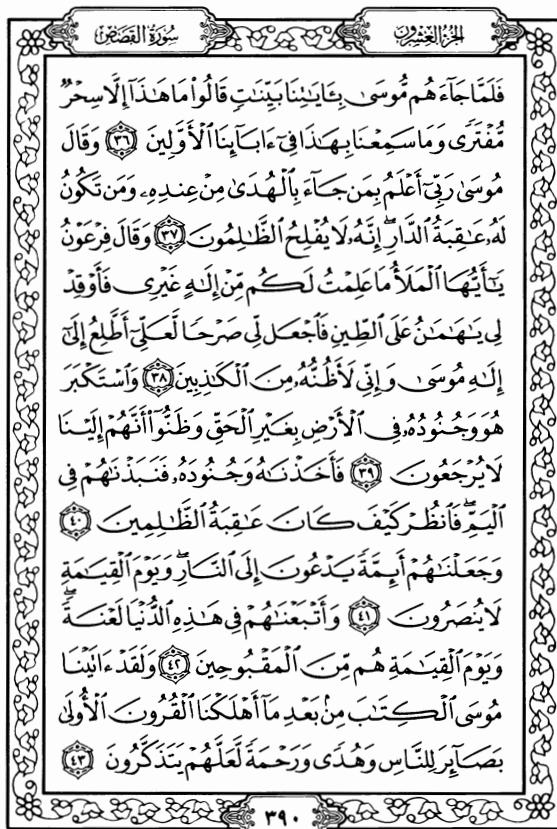 سُورَةُ القَصَصِ
الجُزْءُ العِشْرُونَ
فَلَمَّا جَآءَهُم مُّوسَىٰ بِـَٔايَٰتِنَا بَيِّنَٰتٍ قَالُوا۟ مَا هَٰذَآ إِلَّا سِحْرٌ
مُّفْتَرًى وَمَا سَمِعْنَا بِهَٰذَا فِىٓ ءَابَآئِنَا ٱلْأَوَّلِينَ ٣٦ وَقَالَ
مُوسَىٰ رَبِّىٓ أَعْلَمُ بِمَن جَآءَ بِٱلْهُدَىٰ مِنْ عِندِهِۦ وَمَن تَكُونُ
لَهُۥ عَٰقِبَةُ ٱلدَّارِ ۖ إِنَّهُۥ لَا يُفْلِحُ ٱلظَّٰلِمُونَ ٣٧ وَقَالَ فِرْعَوْنُ
يَٰٓأَيُّهَا ٱلْمَلَأُ مَا عَلِمْتُ لَكُم مِّنْ إِلَٰهٍ غَيْرِى فَأَوْقِدْ
لِى يَٰهَٰمَٰنُ عَلَى ٱلطِّينِ فَٱجْعَل لِّى صَرْحًا لَّعَلِّىٓ أَطَّلِعُ إِلَىٰٓ
إِلَٰهِ مُوسَىٰ وَإِنِّى لَأَظُنُّهُۥ مِنَ ٱلْكَٰذِبِينَ ٣٨ وَٱسْتَكْبَرَ
هُوَ وَجُنُودُهُۥ فِى ٱلْأَرْضِ بِغَيْرِ ٱلْحَقِّ وَظَنُّوٓا۟ أَنَّهُمْ إِلَيْنَا
لَا يُرْجَعُونَ ٣٩ فَأَخَذْنَٰهُ وَجُنُودَهُۥ فَنَبَذْنَٰهُمْ فِى
ٱلْيَمِّ ۖ فَٱنظُرْ كَيْفَ كَانَ عَٰقِبَةُ ٱلظَّٰلِمِينَ ٤٠
وَجَعَلْنَٰهُمْ أَئِمَّةً يَدْعُونَ إِلَى ٱلنَّارِ ۖ وَيَوْمَ ٱلْقِيَٰمَةِ
لَا يُنصَرُونَ ٤١ وَأَتْبَعْنَٰهُمْ فِى هَٰذِهِ ٱلدُّنْيَا لَعْنَةً ۖ
وَيَوْمَ ٱلْقِيَٰمَةِ هُم مِّنَ ٱلْمَقْبُوحِينَ ٤٢ وَلَقَدْ ءَاتَيْنَا
مُوسَى ٱلْكِتَٰبَ مِنۢ بَعْدِ مَآ أَهْلَكْنَا ٱلْقُرُونَ ٱلْأُولَىٰ
بَصَآئِرَ لِلنَّاسِ وَهُدًى وَرَحْمَةً لَّعَلَّهُمْ يَتَذَكَّرُونَ ٤٣
٣٩٠